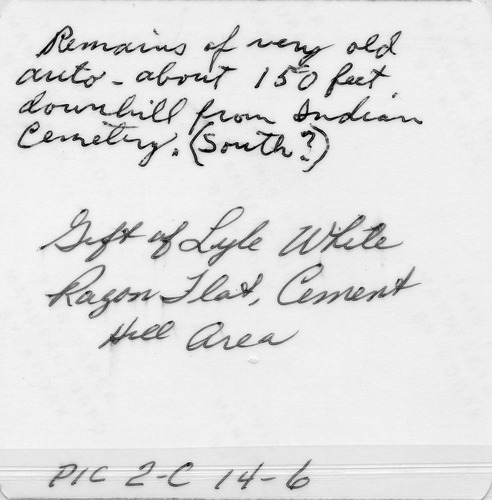 Remains of very old
auto - about 150 feet
downhill from Indian
Cemetery. (South?)
Gift of Lyle White
Ragon Flat, Cement
Hill Area
PIC 2-C 14-6